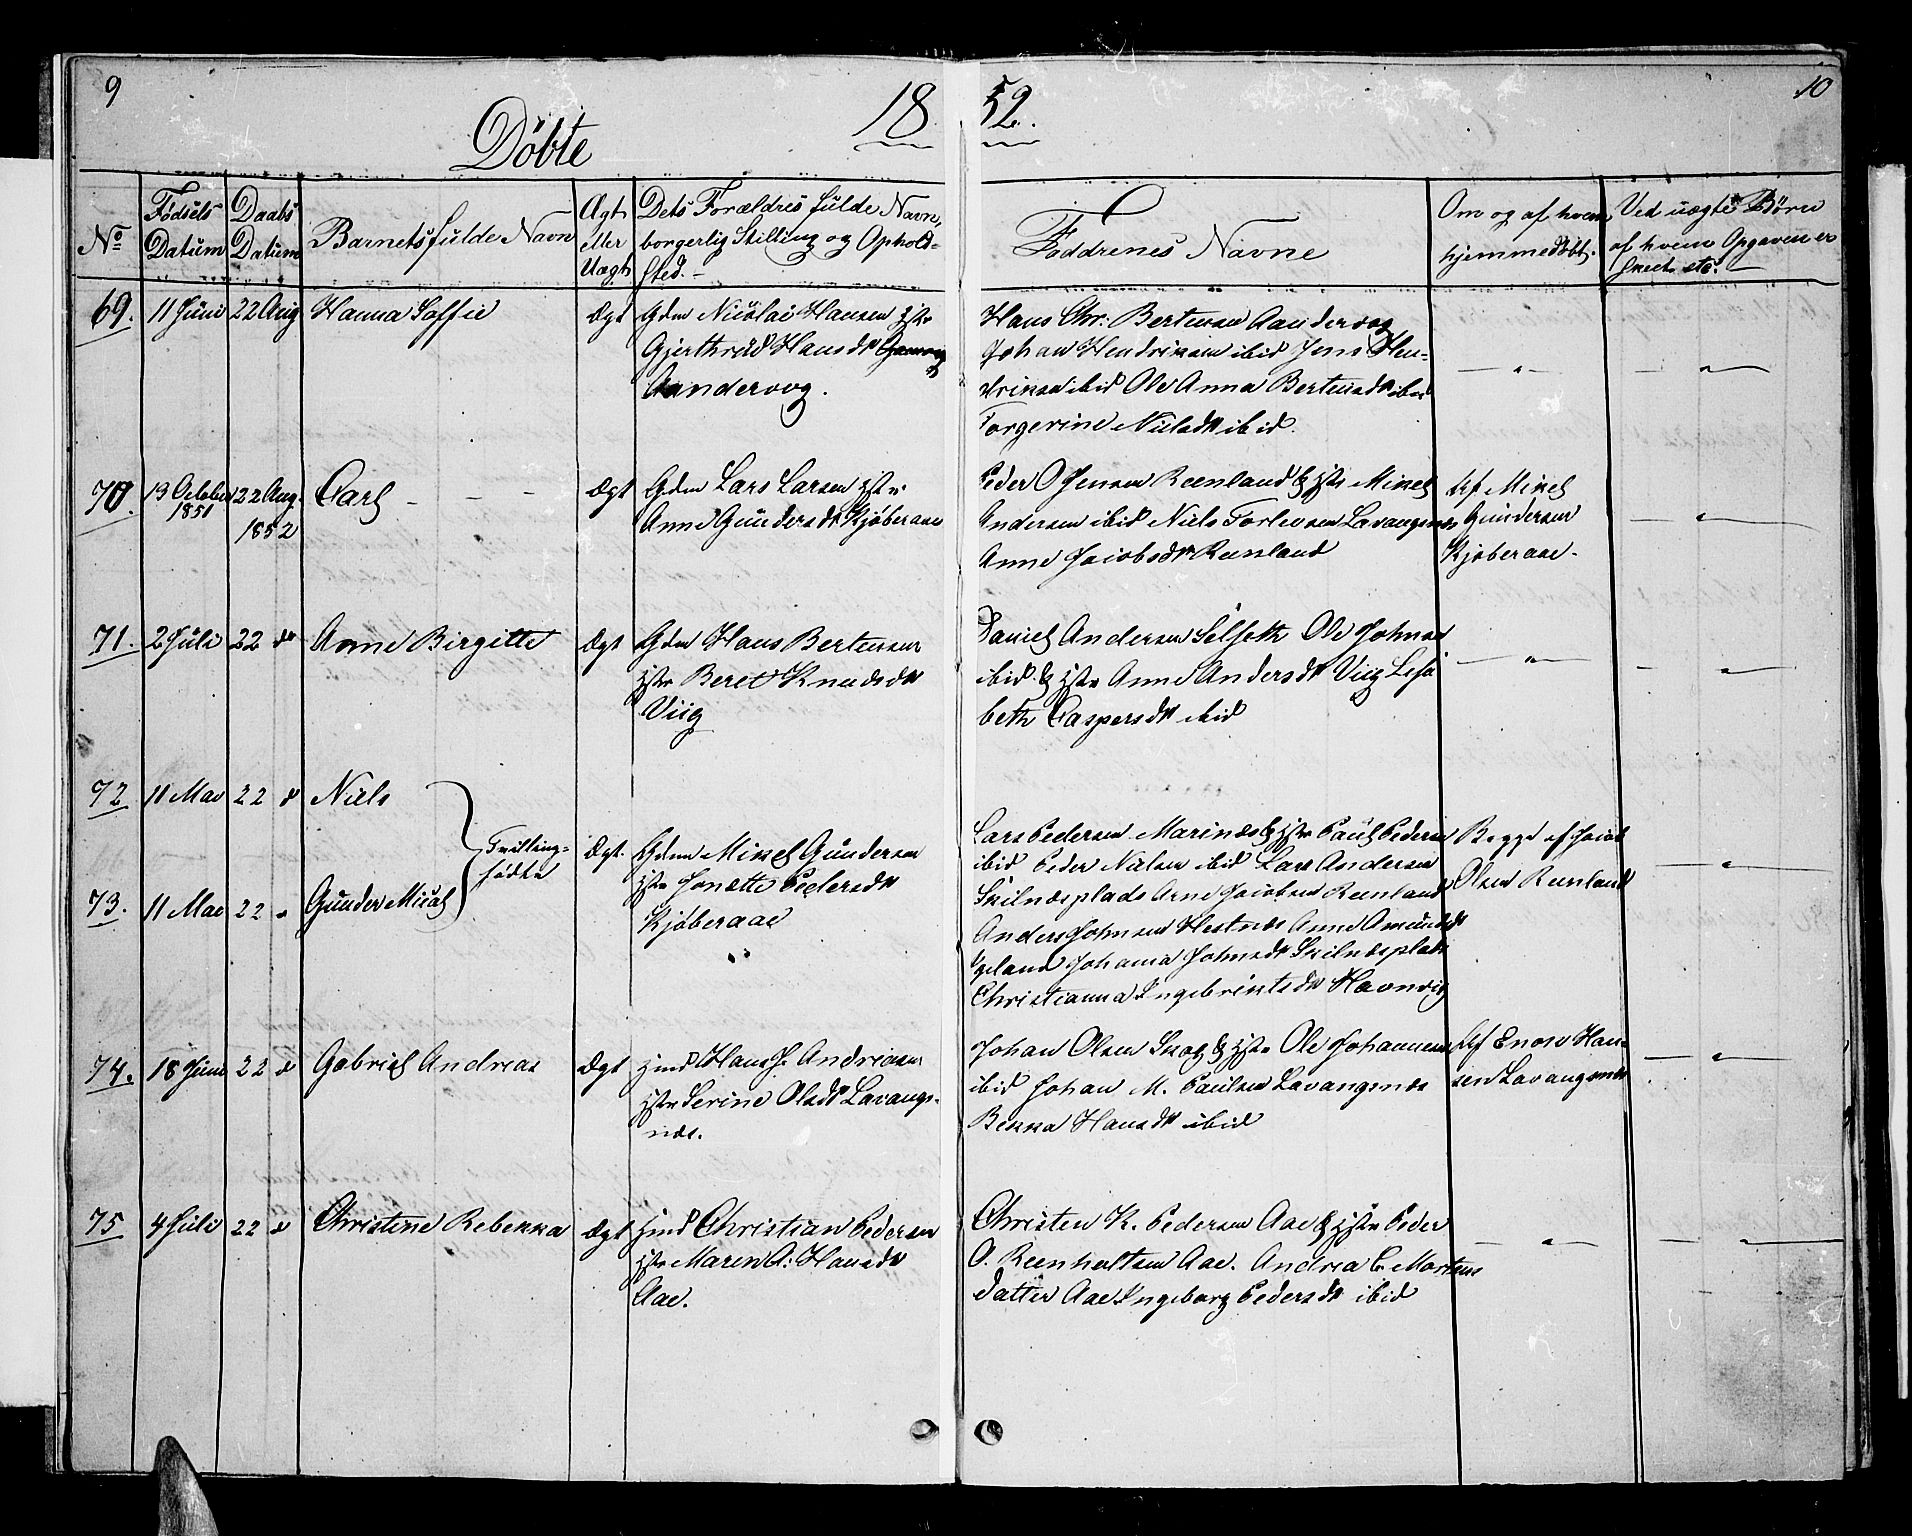 9
18
52.
10
Döbte
No
Födsels Datum
Daabs Datum
Barnets fulde Navn
Ægt eller Uægt
Dets Forældres fulde Navn,
borgerlig Stilling og Ophold-
sted. -
Faddrenes Navne
Om og af hvem
hjemmedöbt.
Ved uægte Börn
af hvem Opgaven er
skeet etc. -
69. 11 Juni 22 Aug Hanna Soffie Ægt Gdm Nicolai Hansen Hstr
Gjerthrud Hansdtr
Aandervog.
Hans Chr. Bertensen Aandervog
Johan Hendriksen ibid Jens Hen-
driksen ibid Ole Anna Bertensdtr ibid
Torgerine Nielsdtr ibid.
70. 13 October 1851 22 Aug. 1852 Carl - - - Ægt Gdm Lars Larsen Hstr
Anne Gundersdtr Kjöberaae
Peder O Jensen Reenland & Hstr Mikel
Andersen ibid Niels Torlevsen Lavangsnæs
Anne Jacobsdtr Reenland
Af Mikel
Gundersen
Kjöberaae.
71. 2 Juli 22 do Anne Birgitte Ægt Gdm Hans Bertensen
Hstr Beret Knudsdtr
Viig
Daniel Andersen Selseth Ole Johnsen
ibid & Hstr Anne Andersdtr Viig Lisa
beth Caspersdtr ibid
72 11 Mai 22 d Niels
Tvilling-
födte
73. 11 Mai 22 " Gunder Mical
Ægt. Gdm Mikel Gundersen
Hstr Jonette Pedersdtr
Kjöberaae
Lars Pedersen Marinæs & Hstr Paul Pedersen
ibid Peder Nielsen ibid Lars Andersen
Skilnæsplads Arne Jacobsen Reenland
Anders Johnsen Hestnæs Anne Amundsdtr
Johanna Johnsdtr Skilnæsplads
Christianna Ingebriktsdtr Havnvig
Begge af Jacob
Olsen Reenland
74. 18 Juni 22 d Gabriel Andreas Ægt Hmd Hans J. Andreasen
Hstr Serine Olsdtr Lavangs-
næs.
Johan Olsen Skog & Hstr Ole Johannesen
ibid Johan M. Paulsen Lavangsnæs
Bekka Hansdtr ibid
Af Enok Han-
sen Lavangsnæs
75 4 Juli 22 d Christine Rebekka Ægt Hmd Christian Pedersen
Hstr Maren A: Hansdtr
Aae.
Christen K. Pedersen Aae & Hstr Peder
O. Reenholtsen Aae. Andrea C. Mortens
datter Aae Ingeborg Pedersdtr ibid